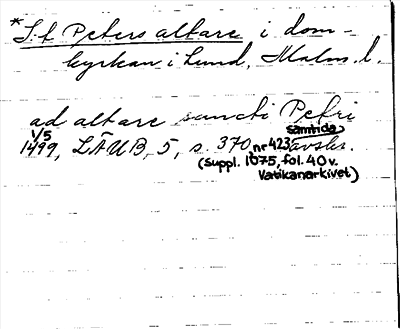 *S:t Peters altare i dom-
kyrkan i Lund, Malm. l.
ad altare sancti Petri
1/5 samtida
1499, LÄUB, 5, s. 370 nr 423 avskr.
(Suppl. 1075, fol. 40 v.
Vatikanarkivet)